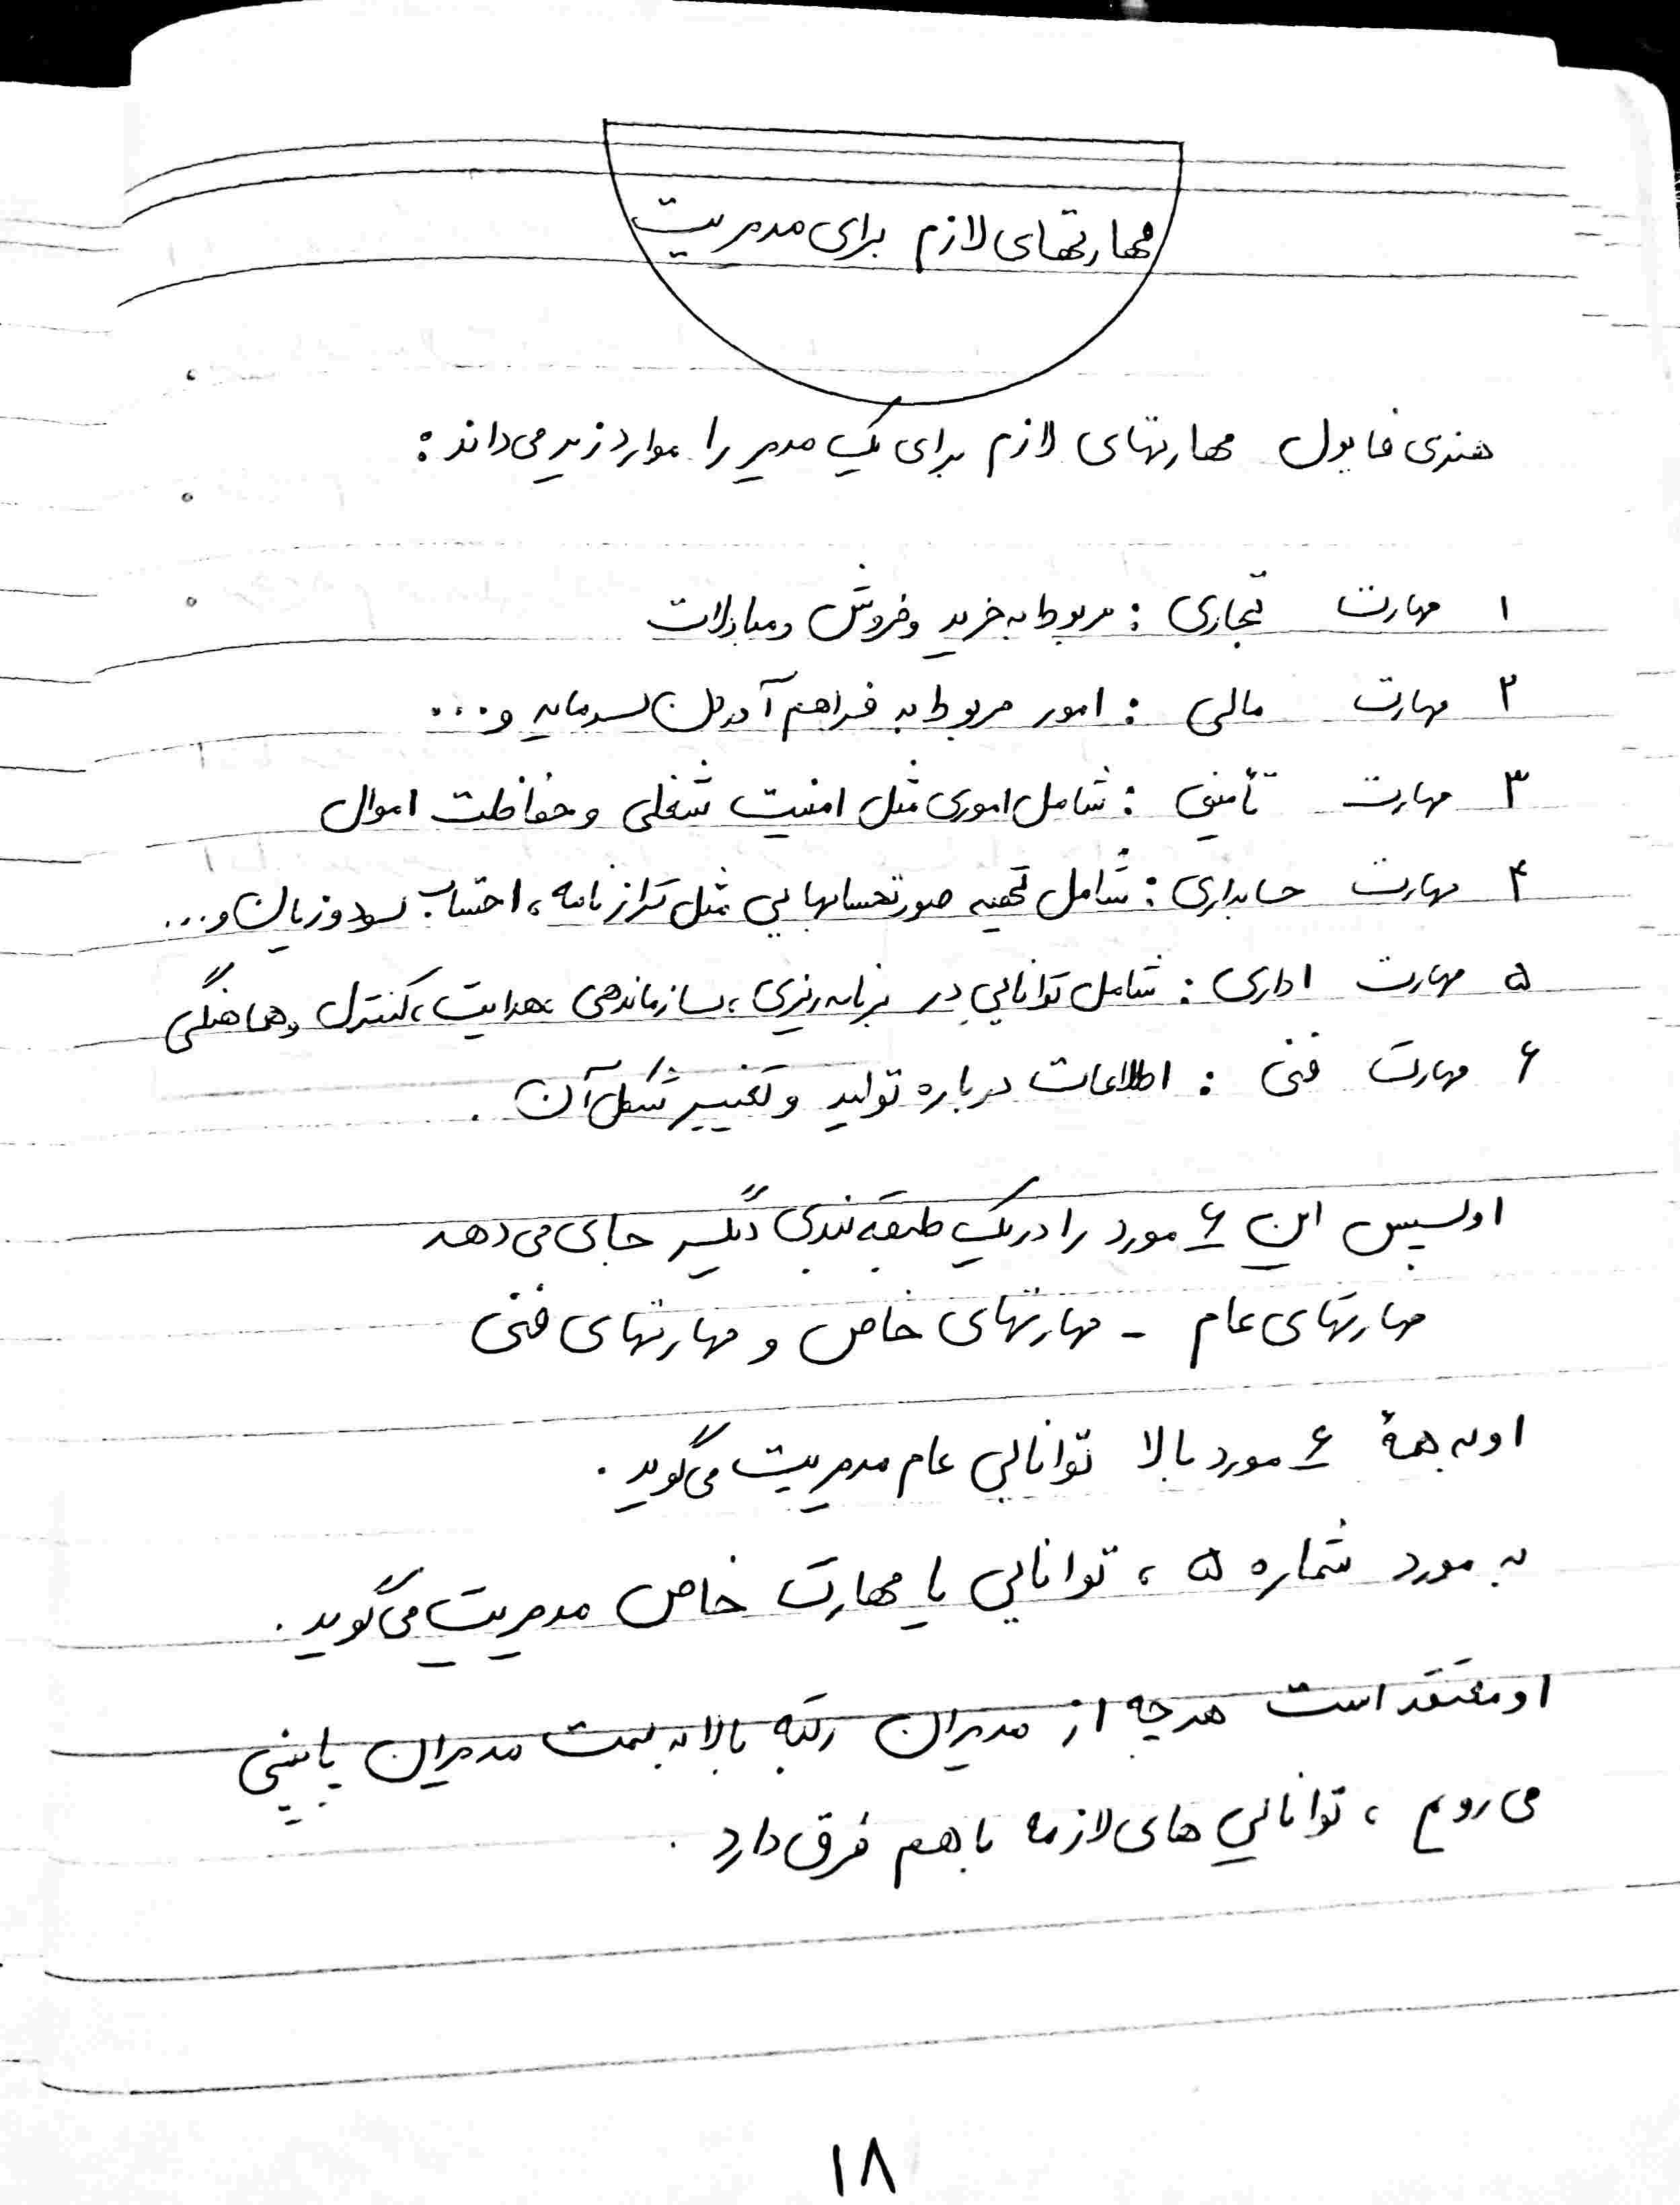 مهارتهای لازم برای مدیریت
هنری فایول مهارتهای لازم برای یک مدیر را موارد زیر می‌داند :
۱ مهارت تجاری : مربوط به خرید و فروش و مبادلات
۲ مهارت مالی : امور مربوط به فراهم آوردن سرمایه و ...
۳ مهارت تأمینی : شامل اموری مثل امنیت شغلی و حفاظت اموال
۴ مهارت حسابداری : شامل تهیه صورتحسابهایی مثل ترازنامه ، احتساب سود و زیان و ...
۵ مهارت اداری : شامل توانایی در برنامه ریزی ، سازماندهی ، هدایت ، کنترل و هماهنگی
۶ مهارت فنی : اطلاعات درباره تولید و تغییر شکل آن .
او سپس این ۶ مورد را در یک طبقه بندی دیگر جای می‌دهد
مهارتهای عام - مهارتهای خاص و مهارتهای فنی
او به همهٔ ۶ مورد بالا توانایی عام مدیریت می‌گوید .
به مورد شماره ۵ ، توانایی یا مهارت خاص مدیریت می‌گوید .
او معتقد است هرچه از مدیران رتبه بالا به سمت مدیران پایینی
می رویم ، توانایی های لازمه با هم فرق دارد .
۱۸